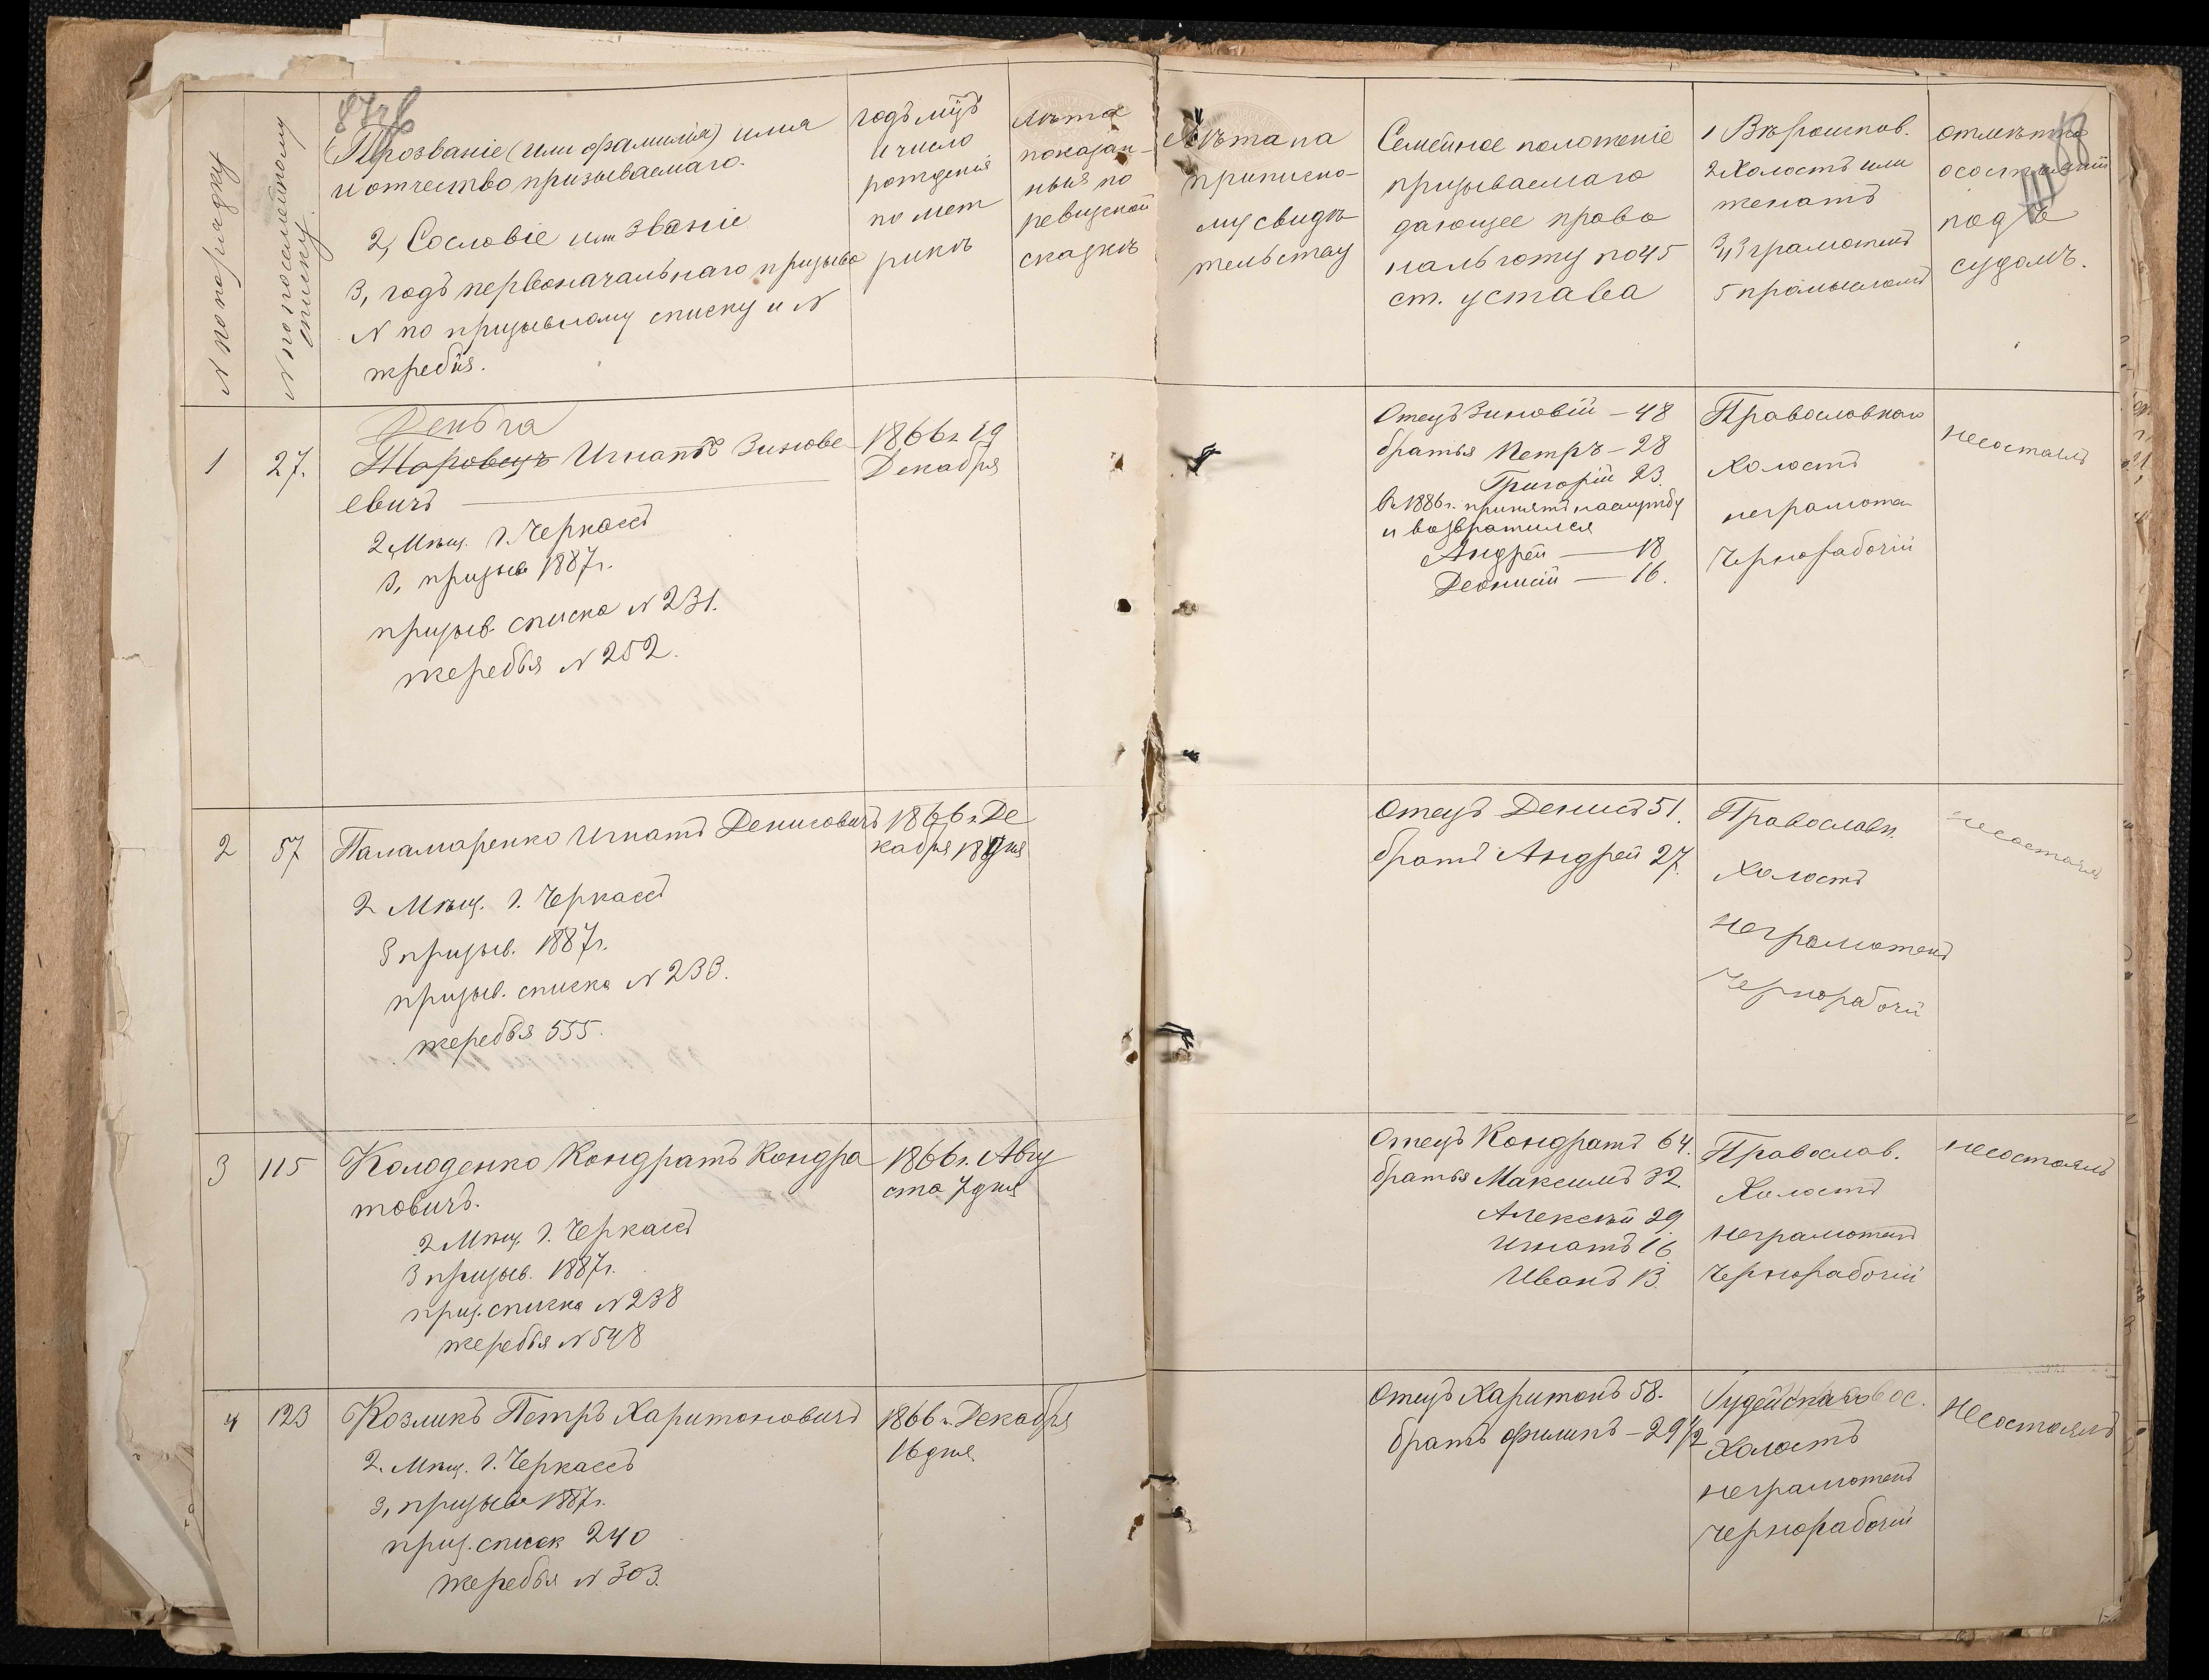 N по порядку
N по посемейному
списку
Прозваніе (или фамилія) имя
и отчество призываемаго.
2, Сословіе или званіе
3, годъ первоначальнаго призыва
N по призывному списку и N
жребія.
годъ мцъ
и число
рожденія
по мет
рикѣ
Лѣта
показан-
ныя по
ревизской
сказкѣ
Лѣта на
приписно-
му свидѣ-
тельству
Семейное положеніе
призываемаго
дающее право
на льготу по 45
ст. устава
1 Вѣроиспов.
2 Холостъ или
женатъ
3, грамотенъ
5 промысломъ
отмѣтка
о состояніи
подъ
судомъ.
1
27.
Игнатъ Зинове-
евичъ
2, Мѣщ. г. Черкассъ
3, призыва 1887 г.
призыв. списка N 231.
жеребья N 252.
1866 г. 19
Декабря
Отецъ Зиновій - 48
братья Петръ - 28
Григорій 23.
Въ 1886 г. принятъ на службу
и возвратился
Андрей — 18
Деонисій — 16.
Православнаго
Холостъ
неграмотен
Чернорабочій
несостоялъ
2
57
Паламаренко Игнатъ Денисовичъ
2 Мѣщ. г. Черкассъ
3 призыв. 1887 г.
призыв. списка N 233.
жеребья 555.
1866 г. Де
кабря дня
Отецъ Денисъ 51.
братъ Андрей 27.
Православн.
Холостъ
Неграмотенъ
Чернорабочій
несостоялъ
3
115
Колоденко Кондратъ Кондра
товичъ.
2 Мѣщ. г. Черкассъ
3 призыв. 1887 г.
приз. списка N 238
жеребья N 548
1866 г. Авгу
ста 7 дня
Отецъ Кондратъ 64.
братья Максимъ 32.
Алексѣй 29
Игнатъ 16
Иванъ 13.
Православ.
Холостъ
Неграмотенъ
Чернорабочій
несостоялъ
4
123
Козликъ Петръ Харитоновичъ
2. Мѣщ. г. Черкассъ
3, призыва 1887 г.
приз. списк 240
жеребья N 303.
1866 г. Декабря
16 дня
Отецъ Харитонъ 58.
братъ Филипъ - 29 1/2
Холостъ
неграмотенъ
чернорабочій
Несостоялъ